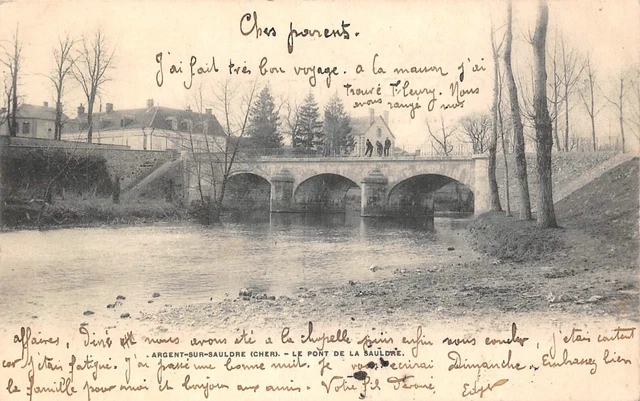 Chers parents.
J'ai fait très bon voyage. a la maison j'ai
trouvé Fleury. Nous
avons rangé nos
affaires, Diné et nous avons été a la chapelle puis enfin nous coucher, j'étais content
car j'étais fatigué. J'ai passé une bonne nuit. Je vous écrirai Dimanche. Embrassez bien
ARGENT-SUR-SAULDRE (CHER). - LE PONT DE LA SAULDRE.
la famille pour moi et bonjour aux amis. Votre fils dévoué.